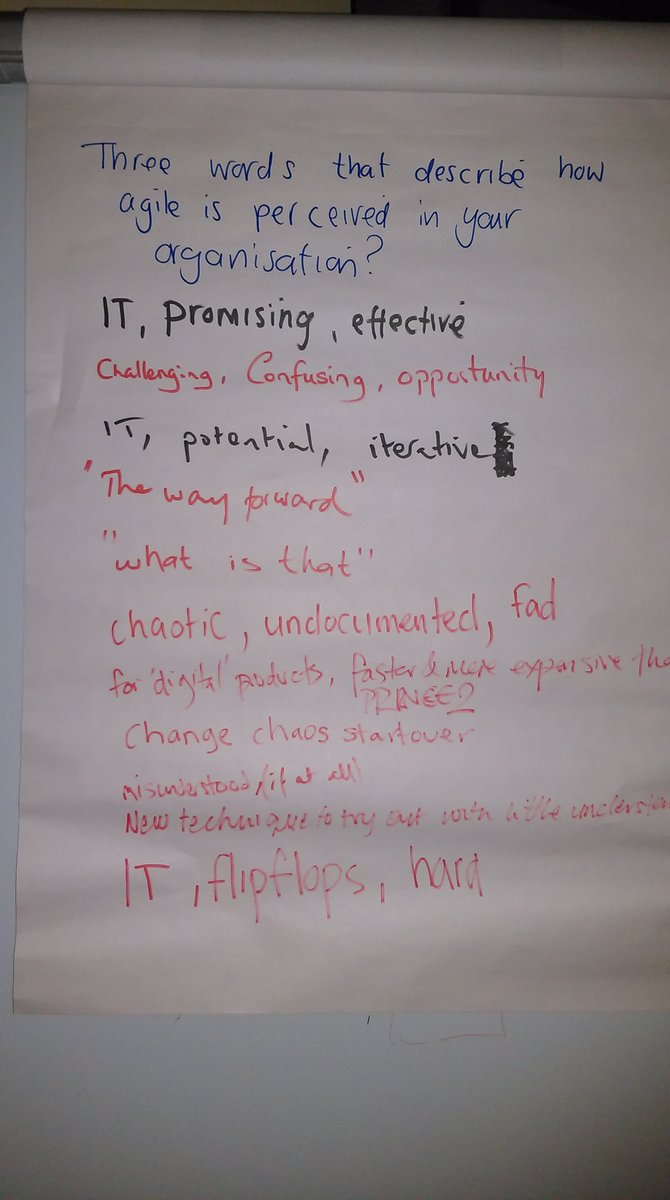 Three words that describe how
agile is perceived in your
organisation?
IT, promising, effective
Challenging, Confusing, opportunity
IT, potential, iterative
"The way forward"
"what is that"
chaotic, undocumented, fad
for 'digital' products, faster & more expensive
PRINCE2
Change chaos startover
misunderstood (if at all)
New technique to try out with little
IT, flipflops, hard